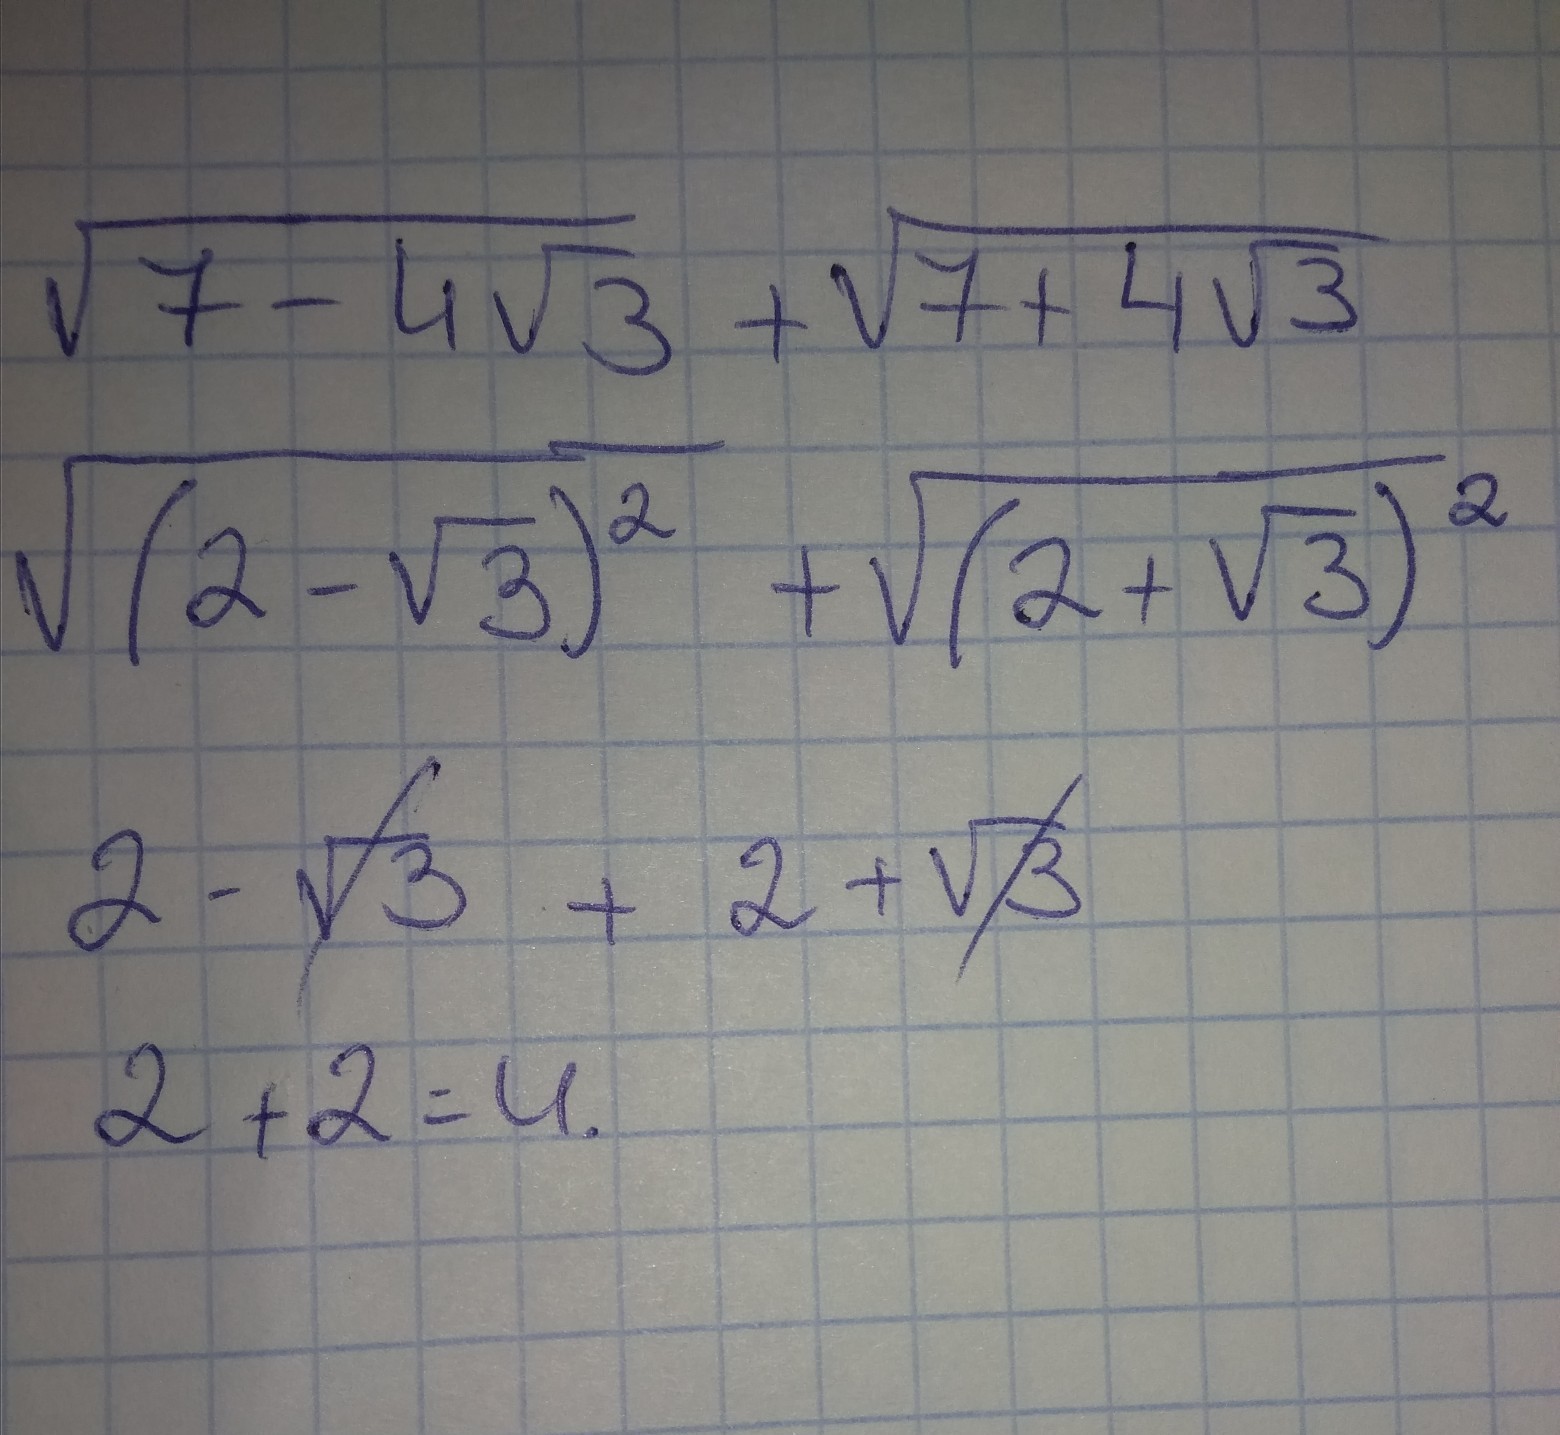 √(7 - 4√3) + √(7 + 4√3)
√((2 - √3)²) + √((2 + √3)²)
2 - √3 + 2 + √3
2 + 2 = 4.